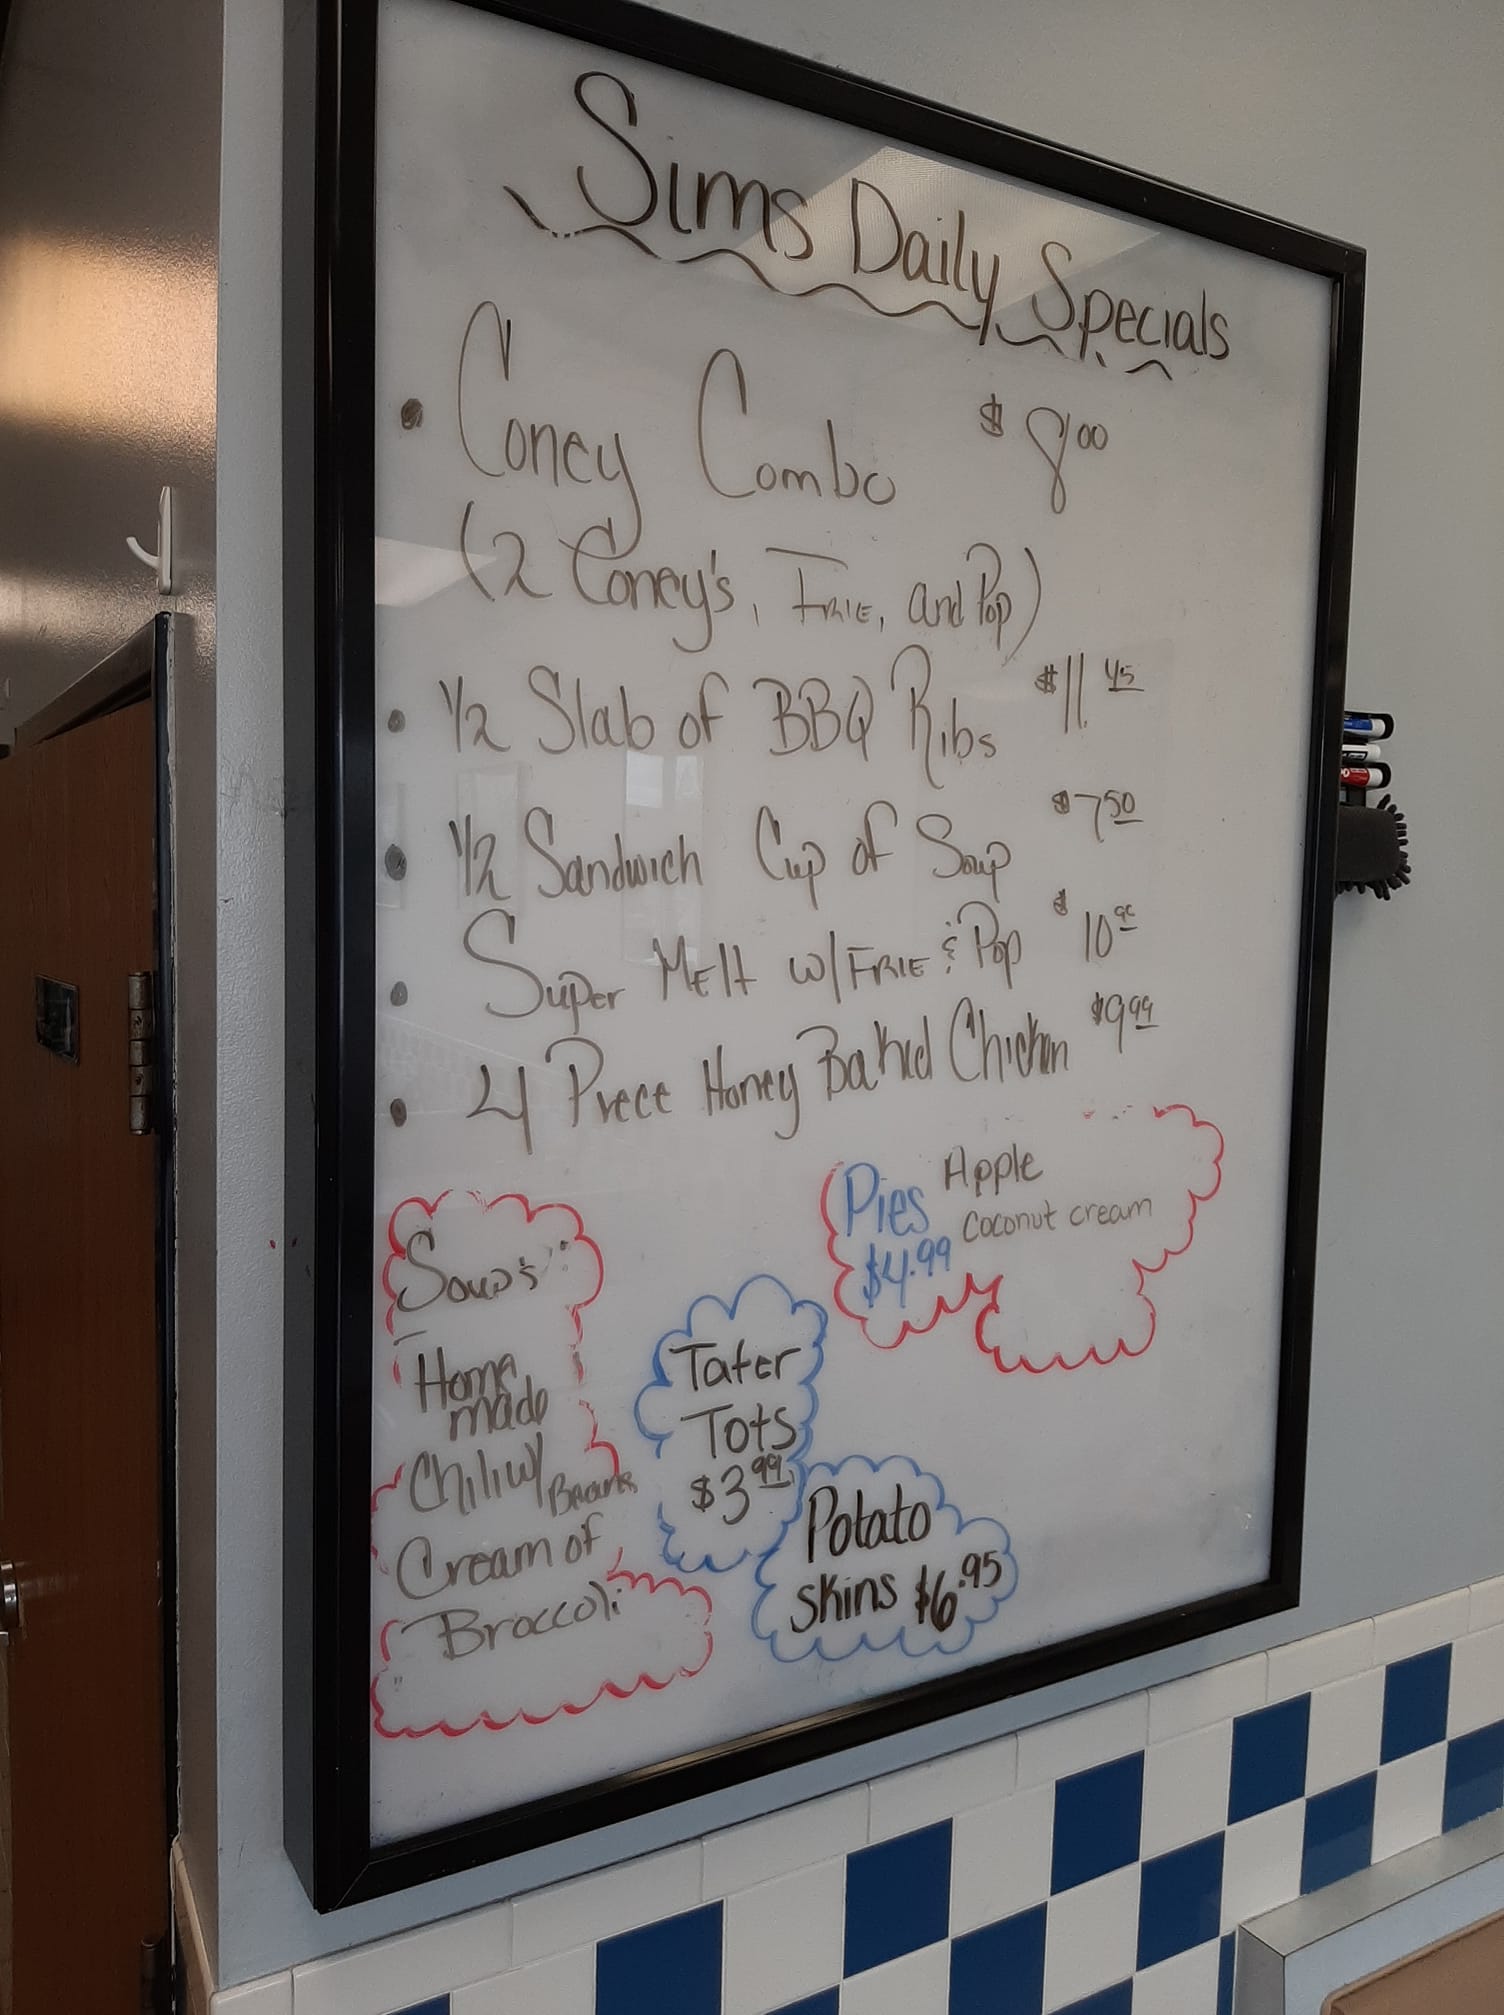 Sims Daily Specials
• Coney Combo $8.00
(2 Coney's, Frie, and Pop)
• 1/2 Slab of BBQ Ribs $11.45
• 1/2 Sandwich Cup of Soup $7.50
• Super Melt w/ Frie & Pop $10.99
• 4 Piece Honey Baked Chicken $9.99
Pies Apple
$4.99 Coconut cream
Soup's:
Home
made
Chili w/ Beans
Cream of
Broccoli
Tater
Tots
$3.99
Potato
skins $6.95